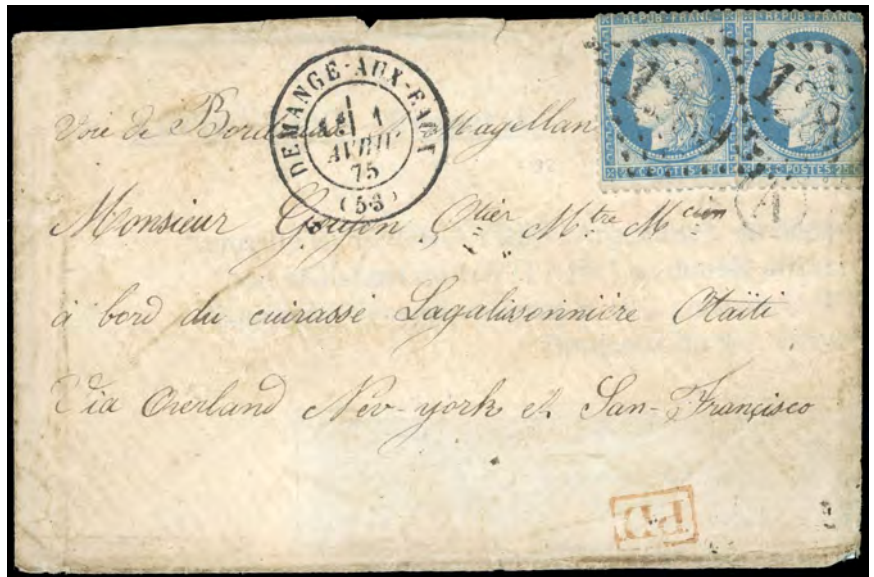 REPUB · FRANC REPUB · FRANC
POSTES 25 C POSTES 25
DEMANGE-AUX-EAUX
1
AVRIL
75
(53)
Voie de Bordeaux Magellan
A
Monsieur Goujon 2tier Mtre Mcien
à bord du cuirassé Lagalissonnière Otaïti
Via Overland Nev-york et San-Françisco
PD